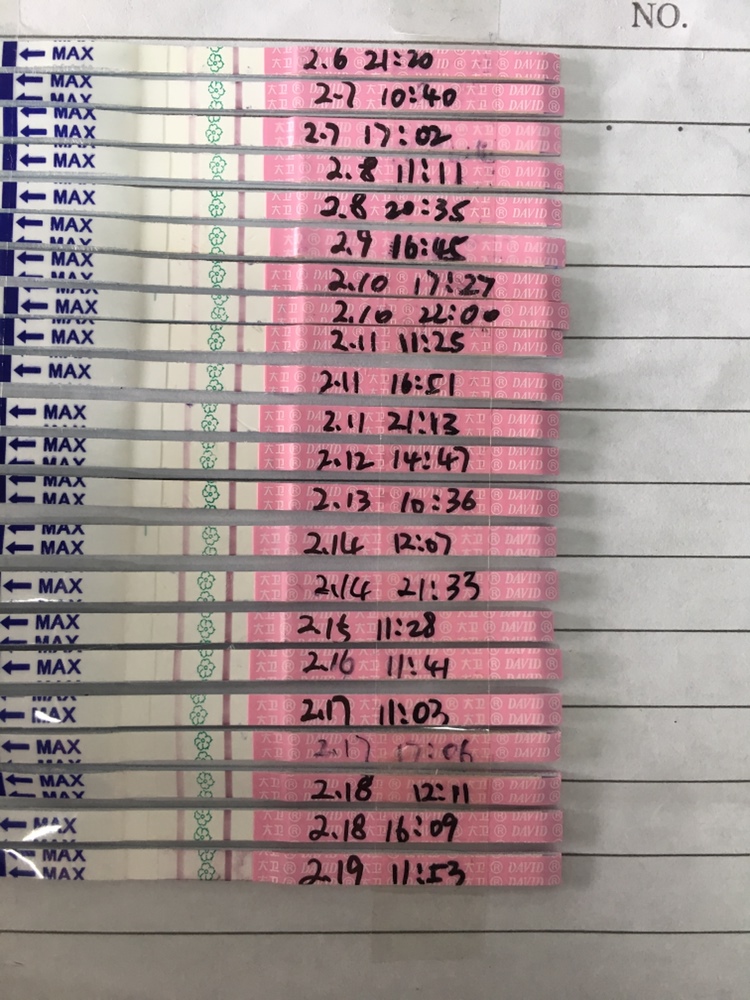 NO.
← MAX 2.6 21:20 大卫® DAVID®
← MAX 2.7 10:40 大卫® DAVID®
← MAX 2.7 17:02 大卫® DAVID®
← MAX 2.8 11:11 大卫® DAVID®
← MAX 2.8 20:35 大卫® DAVID®
← MAX 2.9 16:45 大卫® DAVID®
← MAX 2.10 17:27 大卫® DAVID®
← MAX 2.10 22:00 大卫® DAVID®
← MAX 2.11 11:25 大卫® DAVID®
← MAX 2.11 16:51 大卫® DAVID®
← MAX 2.11 21:13 大卫® DAVID®
← MAX 2.12 14:47 大卫® DAVID®
← MAX 2.13 10:36 大卫® DAVID®
← MAX 2.14 12:07 大卫® DAVID®
← MAX 2.14 21:33 大卫® DAVID®
← MAX 2.15 11:28 大卫® DAVID®
← MAX 2.16 11:41 大卫® DAVID®
← MAX 2.17 11:03 大卫® DAVID®
← MAX 2.17 大卫® DAVID®
← MAX 2.18 12:11 大卫® DAVID®
← MAX 2.18 16:09 大卫® DAVID®
← MAX 2.19 11:53 大卫® DAVID®